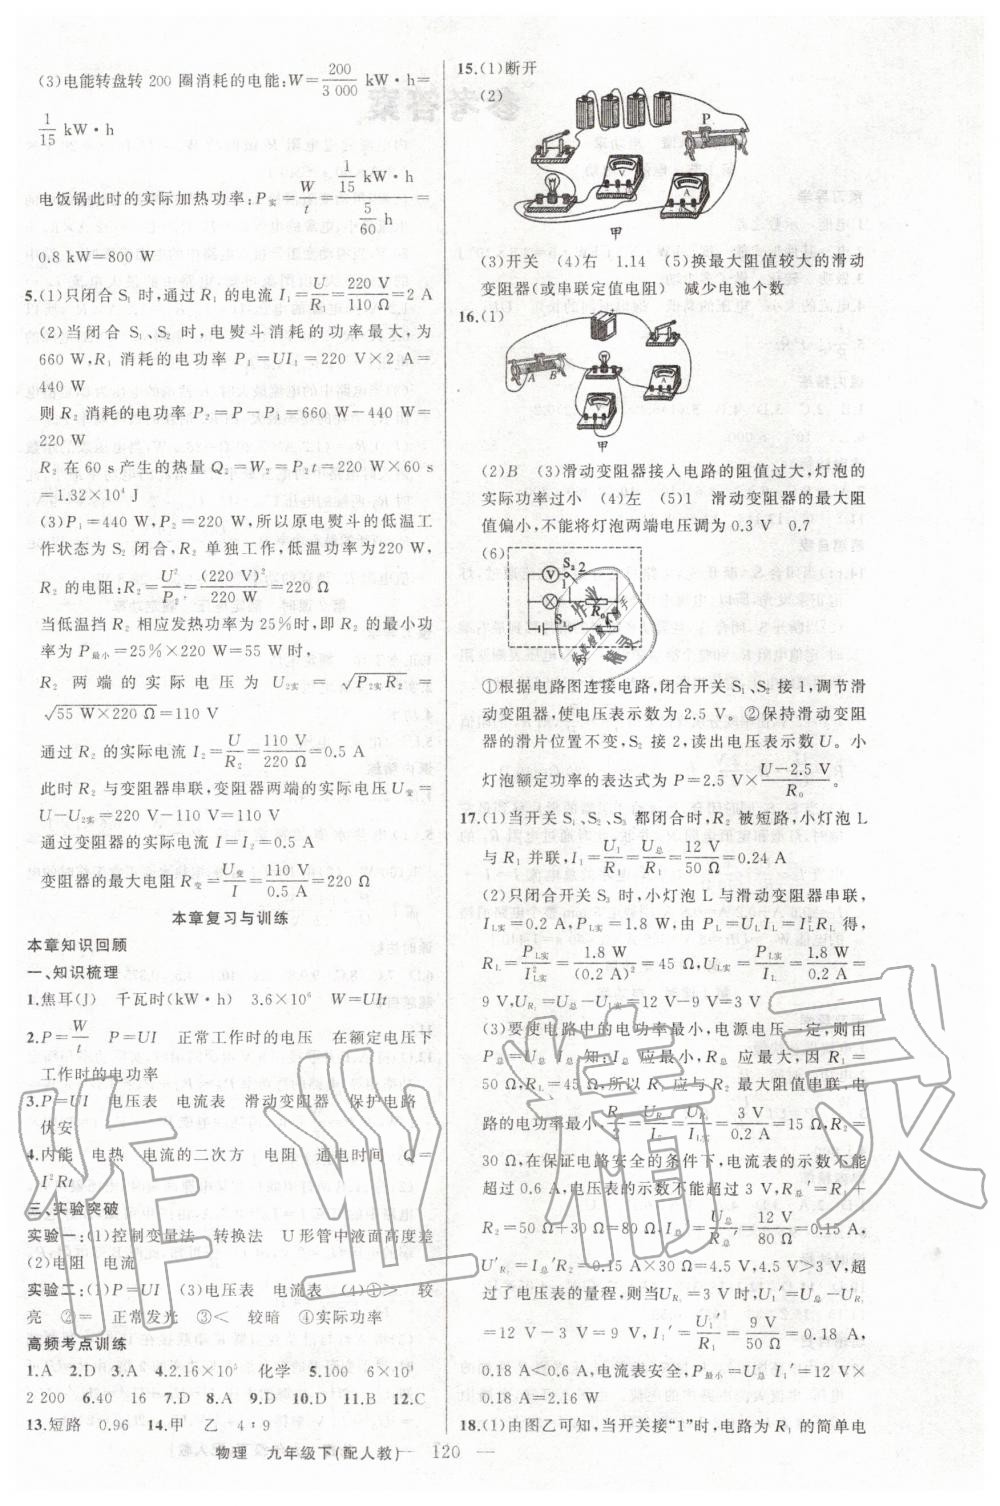 (3)电能转盘转 200 圈消耗的电能:W=200/3 000 kW·h=
1/15 kW·h
电饭锅此时的实际加热功率:P实=W/t=(1/15 kW·h)/(5/60 h)=
0.8 kW=800 W
5.(1)只闭合 S₁ 时,通过 R₁ 的电流 I₁=U/R₁=220 V/110 Ω=2 A
(2)当闭合 S₁、S₂ 时,电熨斗消耗的功率最大,为
660 W,R₁ 消耗的电功率 P₁=UI₁=220 V×2 A=
440 W
则 R₂ 消耗的电功率 P₂=P-P₁=660 W-440 W=
220 W
R₂ 在 60 s 产生的热量 Q₂=W₂=P₂t=220 W×60 s
=1.32×10⁴ J
(3)P₁=440 W,P₂=220 W,所以原电熨斗的低温工
作状态为 S₂ 闭合,R₂ 单独工作,低温功率为220 W,
R₂ 的电阻:U²/P₂=(220 V)²/220 W=220 Ω
当低温挡 R₂ 相应发热功率为 25%时,即 R₂ 的最小功
率为 P最小=25%×220 W=55 W 时,
R₂ 两端的实际电压为 U₂实=√(P₂实R₂)=
√(55 W×220 Ω)=110 V
通过 R₂ 的实际电流 I₂=U/R₂=110 V/220 Ω=0.5 A
此时 R₂ 与变阻器串联,变阻器两端的实际电压U变=
U-U₂实=220 V-110 V=110 V
通过变阻器的实际电流 I=I₂=0.5 A
变阻器的最大电阻 R变=U变/I=110 V/0.5 A=220 Ω
本章复习与训练
本章知识回顾
一、知识梳理
1.焦耳(J) 千瓦时(kW·h) 3.6×10⁶ W=UIt
2.P=W/t P=UI 正常工作时的电压 在额定电压下
工作时的电功率
3.P=UI 电压表 电流表 滑动变阻器 保护电路
伏安
4.内能 电热 电流的二次方 电阻 通电时间 Q=
I²Rt
三、实验突破
实验一:(1)控制变量法 转换法 U 形管中液面高度差
(2)电阻 电流
实验二:(1)P=UI (3)电压表 电流表 (4)①> 较
亮 ②= 正常发光 ③< 较暗 ④实际功率
高频考点训练
1.A 2.D 3.A 4.2.16×10⁵ 化学 5.100 6×10⁴
2 200 6.40 16 7.D 8.A 9.D 10.D 11.B 12.C
13.短路 0.96 14.甲 乙 4∶9
15.(1)断开
(2)
P
V
A
甲
(3)开关 (4)右 1.14 (5)换最大阻值较大的滑动
变阻器(或串联定值电阻) 减少电池个数
16.(1)
A B
甲
(2)B (3)滑动变阻器接入电路的阻值过大,灯泡的
实际功率过小 (4)左 (5)1 滑动变阻器的最大阻
值偏小,不能将灯泡两端电压调为 0.3 V 0.7
(6)
V S₂ 2
1
R₀
S₁
①根据电路图连接电路,闭合开关 S₁、S₂ 接 1,调节滑
动变阻器,使电压表示数为 2.5 V。②保持滑动变阻
器的滑片位置不变,S₂ 接 2,读出电压表示数 U。小
灯泡额定功率的表达式为 P=2.5 V×(U-2.5 V)/R₀
17.(1)当开关 S₁、S₂、S₃ 都闭合时,R₂ 被短路,小灯泡 L
与 R₁ 并联,I₁=U₁/R₁=U总/R₁=12 V/50 Ω=0.24 A
(2)只闭合开关 S₃ 时,小灯泡 L 与滑动变阻器串联,
IL实=0.2 A,PL实=1.8 W,由 PL=ULIL=IL²RL 得,
RL=PL实/IL实²=1.8 W/(0.2 A)²=45 Ω,UL实=PL实/IL=1.8 W/0.2 A=
9 V,UR₂=U总-UL实=12 V-9 V=3 V
(3)要使电路中的电功率最小,电源电压一定,则由
P总=U总I总 知:I总 应最小,R总 应最大,因 R₁=
50 Ω,RL=45 Ω,所以 R₁ 应与 R₂ 最大阻值串联,电
路的电功率最小,
=3 V/0.2 A=15 Ω,R₂=
30 Ω,在保证电路安全的条件下,电流表的示数不能
超过 0.6 A,电压表的示数不能超过 3 V,R总′=R₁+
R₂=50 Ω+30 Ω=80 Ω,I总=U总/R总′=12 V/80 Ω=0.15 A,
U′R₂=I总R₂=0.15 A×30 Ω=4.5 V,4.5 V>3 V,超
过了电压表的量程,则当UR₂=3 V时,U₁′=U总-UR₂
=12 V-3 V=9 V,I₁′=U₁′/R₁=9 V/50 Ω=0.18 A,
0.18 A<0.6 A,电流表安全,P最小=U总I₁′=12 V×
0.18 A=2.16 W
18.(1)由图乙可知,当开关接“1”时,电路为 R₁ 的简单电
物理 九年级下(配人教)— 120 —
作业精灵